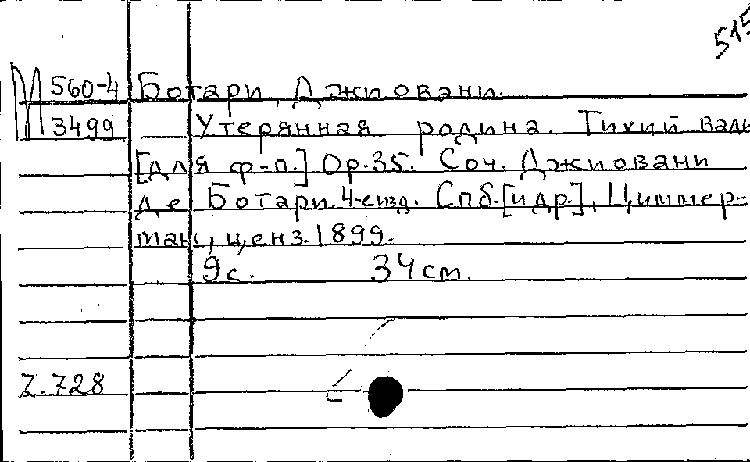 515
М 560-4 Ботари, Джиовани.
3499 Утерянная родина. Тихий валь
[для ф-п.] Op. 35. Соч. Джиовани
де Ботари. 4-е изд. Спб. [и др], Циммер-
ман, ценз. 1899.
9 с. 34 см.
7.728